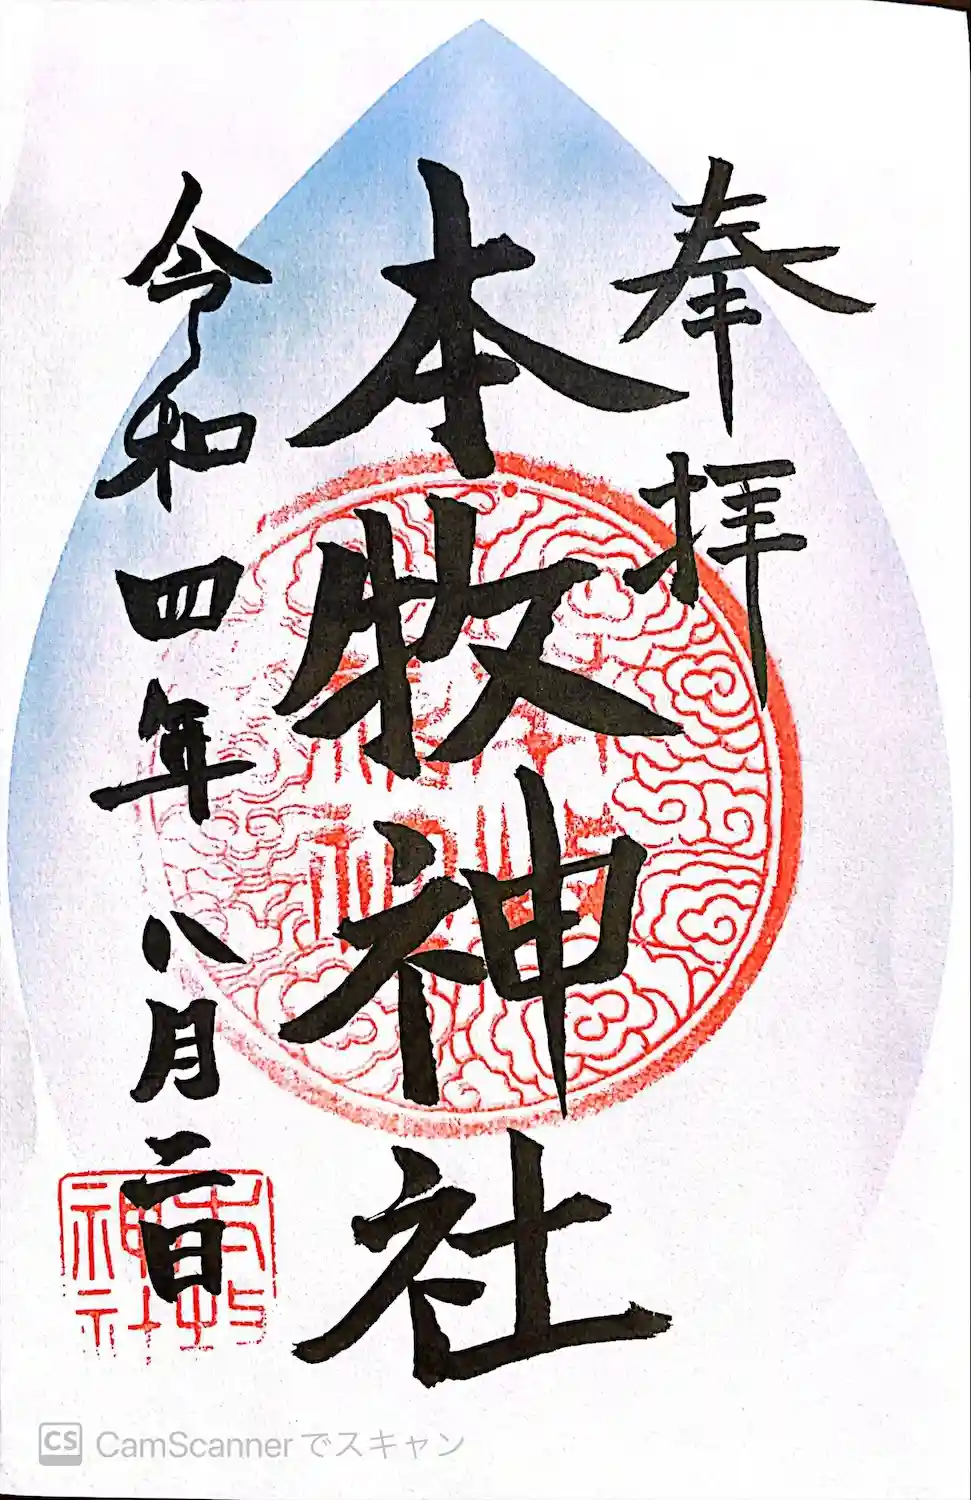 奉拝
本牧神社
令和四年八月二日
CS CamScannerでスキャン